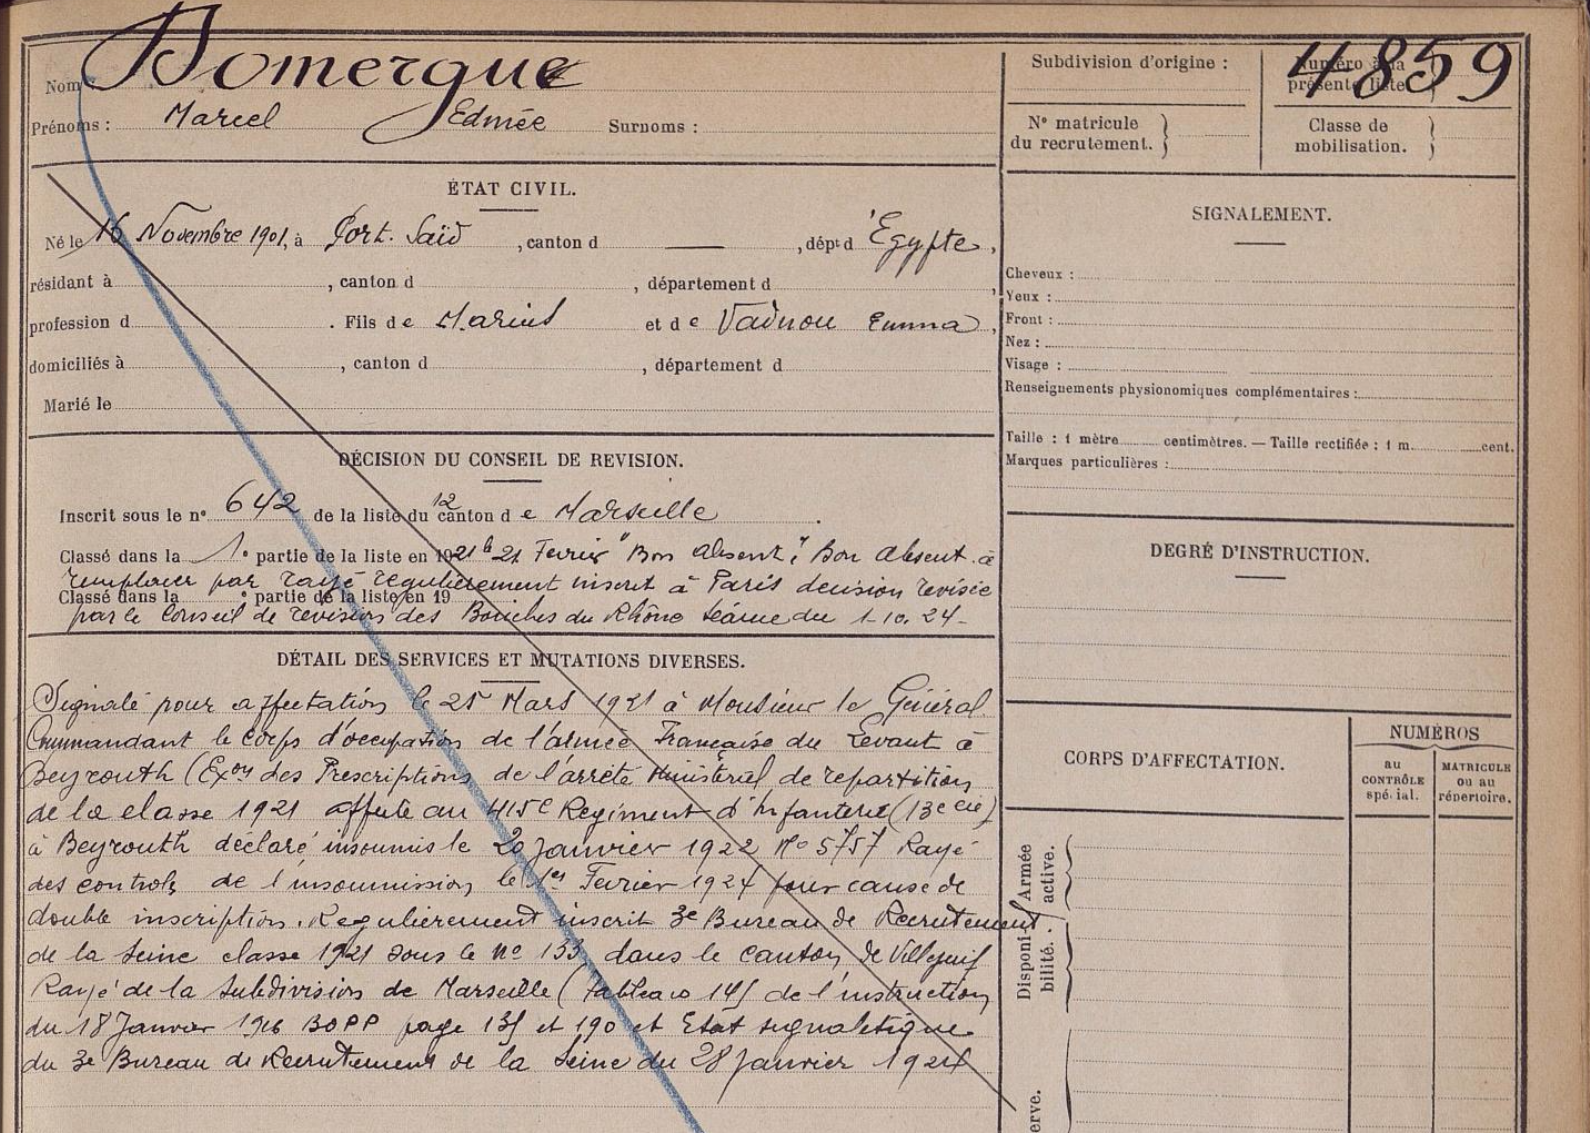 Nom : Domergue
Prénoms : Marcel Edmée Surnoms :
Subdivision d'origine :
Numéro à la présente liste 4859
N° matricule du recrutement.
Classe de mobilisation.
ÉTAT CIVIL.
Né le 16 Novembre 1901, à Port. Saïd, canton d — , dépt d Egypte,
résidant à , canton d , département d
profession d . Fils de Marius et de Emma,
domiciliés à , canton d , département d
Marié le
SIGNALEMENT.
Cheveux :
Yeux :
Front :
Nez :
Visage :
Renseignements physionomiques complémentaires :
Taille : 1 mètre centimètres. — Taille rectifiée : 1 m. cent.
Marques particulières :
DÉCISION DU CONSEIL DE REVISION.
Inscrit sous le n° 642 de la liste du 12 canton de Marseille .
Classé dans la 1e partie de la liste en 1921 le 21 Fevrier "Bon absent", Bon absent. à
remplacer par rayé regulièrement inscrit à Paris decision revisée
Classé dans la e partie de la liste en 19
par le Conseil de revision des Bouches du Rhône séance du 1-10.24-
DEGRÉ D'INSTRUCTION.
DÉTAIL DES SERVICES ET MUTATIONS DIVERSES.
Signalé pour affectation le 25 Mars 1921 à Monsieur le Général
Commandant le Corps d'occupation de l'armée Française du Levant à
Beyrouth (Exon des Prescriptions de l'arrêté Ministériel de repartition
de la classe 1921 affecté au 415e Regiment d'Infanterie (13e cie)
à Beyrouth déclaré insoumis le 20 Janvier 1922 No 5757 Rayé
des controles de l'insoumission le 1er Fevrier 1924 pour cause de
double inscription. Regulièrement inscrit 3e Bureau de Recrutement
de la Seine classe 1921 sous le no 133 dans le canton de Villejuif
Rayé de la Subdivision de Marseille (Tableau de l'instruction
du 18 Janvier BOPP page et 190 et Etat signaletique
du 3e Bureau de Recrutement de la Seine du 28 Janvier 1924
CORPS D'AFFECTATION.
NUMÉROS
au CONTRÔLE spécial.
MATRICULE ou au répertoire.
Armée active.
Disponibilité.
erve.